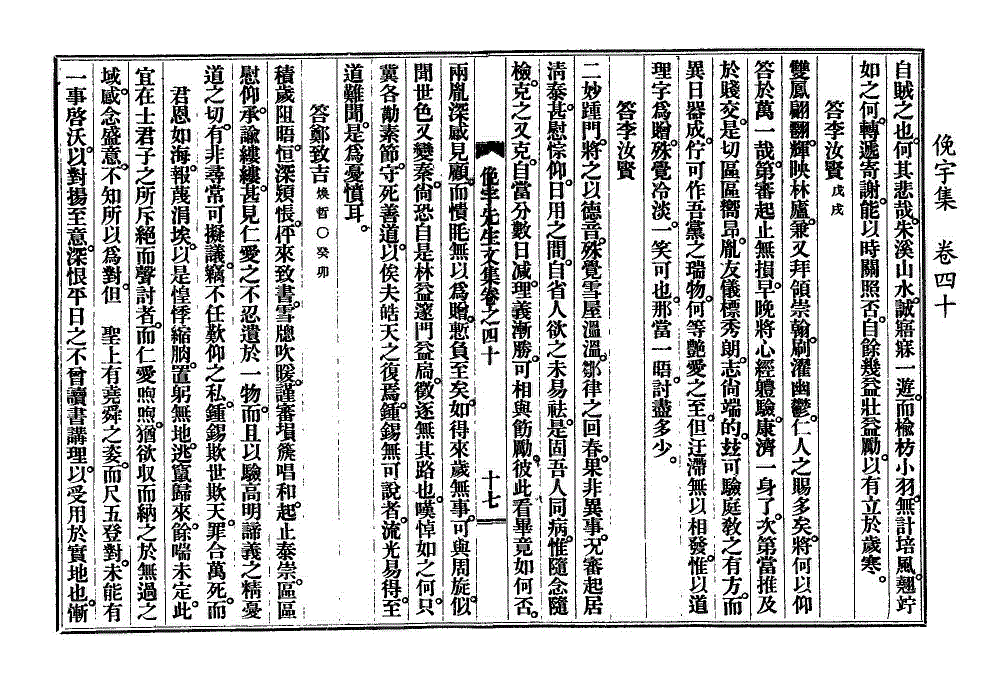 俛宇集　卷四十
自賊之也。何其悲哉。朱溪山水。誠寤寐一遊。而楡枋小羽。無計培風。翹竚
如之何。轉遞寄謝。能以時關照否。自餘幾益壯益勵。以有立於歲寒。
答李汝賢 戊戌
雙鳳翩翻。輝映林廬。兼又拜領崇翰。刷濯幽鬱。仁人之賜多矣。將何以仰
答於萬一哉。第審起止無損。早晩將心經軆驗。康濟一身了。次第當推及
於賤交。是切區區嚮昻。胤友儀標秀朗。志尙端的。玆可驗庭敎之有方。而
異日器成。佇可作吾黨之瑞物。何等艶愛之至。但迂滯無以相發。惟以道
理字爲贈。殊覺冷淡。一笑可也。那當一晤。討盡多少。
答李汝賢
二妙踵門。將之以德音。殊覺雪屋溫溫。鄒律之回春。果非異事。况審起居
淸泰。甚慰悰仰。日用之間。自省人欲之未易祛。是固吾人同病。惟隨念隨
檢。克之又克。自當分數日减。理義漸勝。可相與飭勵。彼此看畢竟如何否。
俛宇先生文集卷之四十　十七
兩胤深感見顧。而憒眊無以爲贈。慙負至矣。如得來歲無事。可與周旋。似
聞世色又變秦。尙恐自是林益邃門益局。徵逐無其路也。嘆悼如之何。只
冀各勖素節。守死善道。以俟夫皓天之復焉。鍾錫無可說者。流光易得。至
道難聞。是爲憂憤耳。
答鄭致吉 煥哲○癸卯
積歲阻晤。恒深顙悵。伻來致書。雪牕吹暖。謹審塤篪唱和。起止泰崇。區區
慰仰。承諭縷縷。甚見仁愛之不忍遺於一物。而且以驗高明諦義之精。憂
道之切。有非尋常可擬議。竊不任歎仰之私。鍾錫欺世欺天。罪合萬死。而
君恩如海。報蔑涓埃。以是惶悸縮朒。置躬無地。逃竄歸來。餘喘未定。此
宜在士君子之所斥絕而聲討者。而仁愛煦煦。猶欲收而納之於無過之
域。感念盛意。不知所以爲對。但　聖上有堯舜之姿。而尺五登對。未能有
一事啓沃。以對揚至意。深恨平日之不曾讀書講理。以受用於實地也。慚